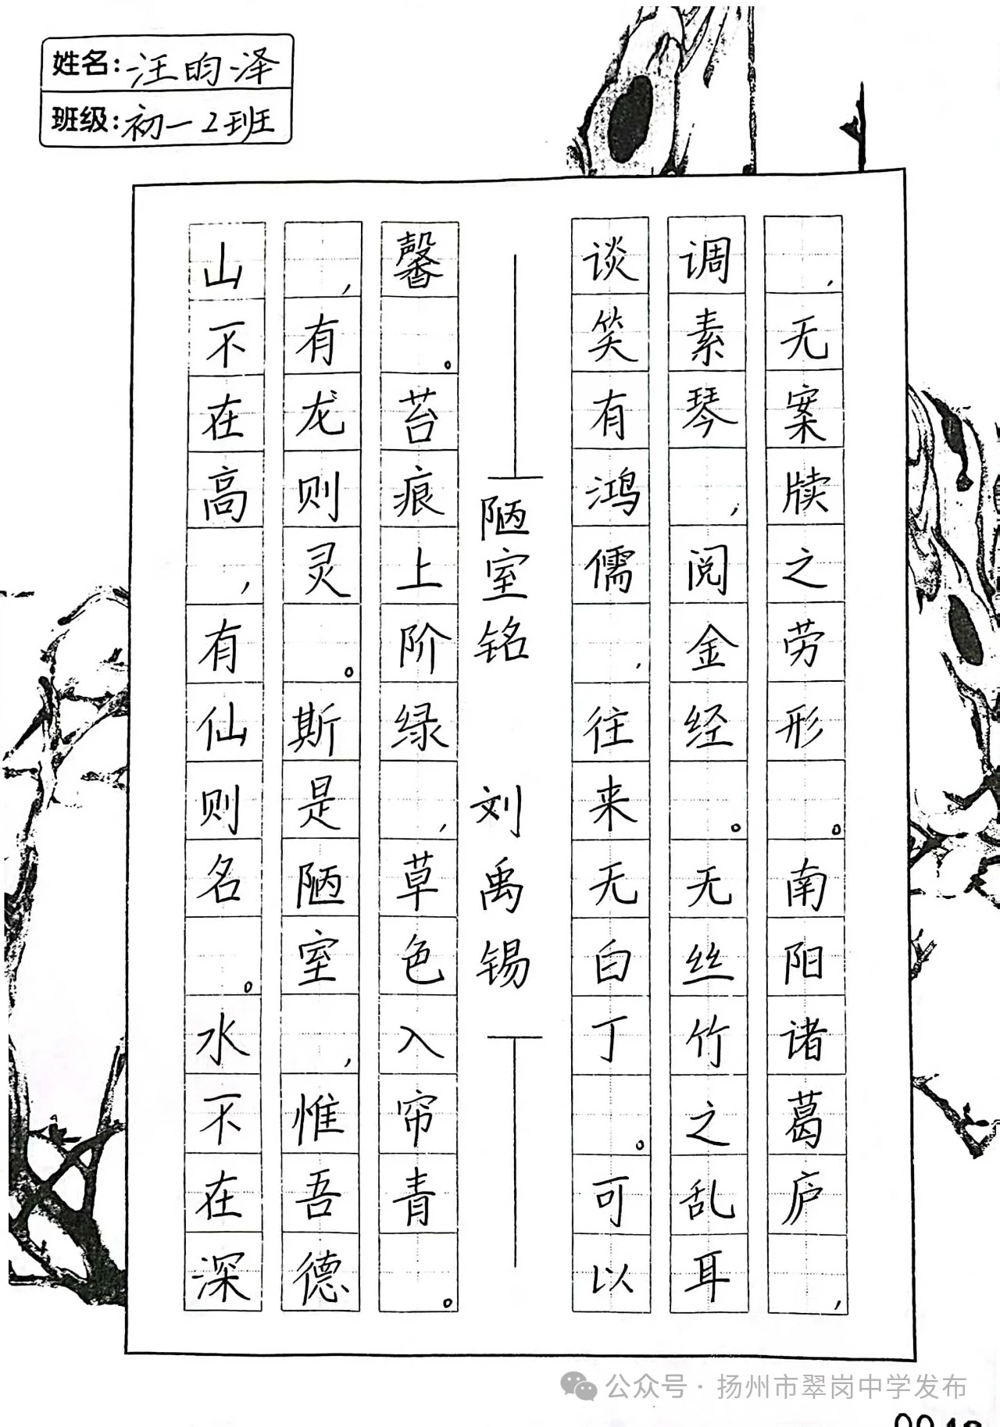 姓名:汪昀泽
班级:初一2班
山不在高,有仙则名。水不在深
,有龙则灵。斯是陋室,惟吾德
馨。苔痕上阶绿,草色入帘青。
陋室铭 刘禹锡
谈笑有鸿儒,往来无白丁。可以
调素琴,阅金经。无丝竹之乱耳
,无案牍之劳形。南阳诸葛庐,
公众号·扬州市翠岗中学发布